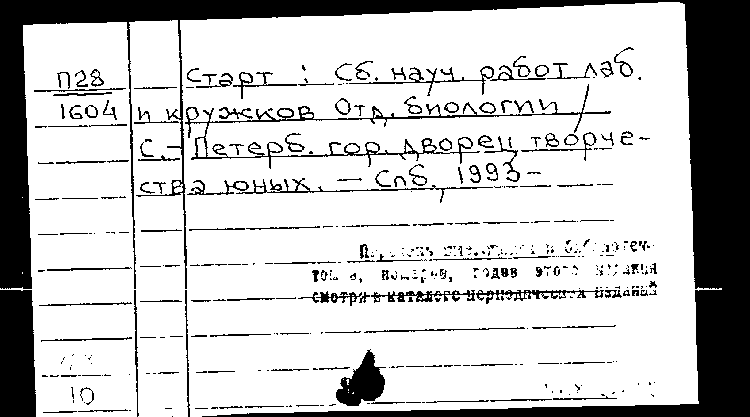 П28 Старт : Сб. науч. работ лаб.
1604 и кружков Отд. биологии /
С.-Петерб. гор. дворец творче-
ства юных. — Спб., 1993-
в библиотеч-
номеров, годов этого издания
смотри в каталоге периодических изданий
10